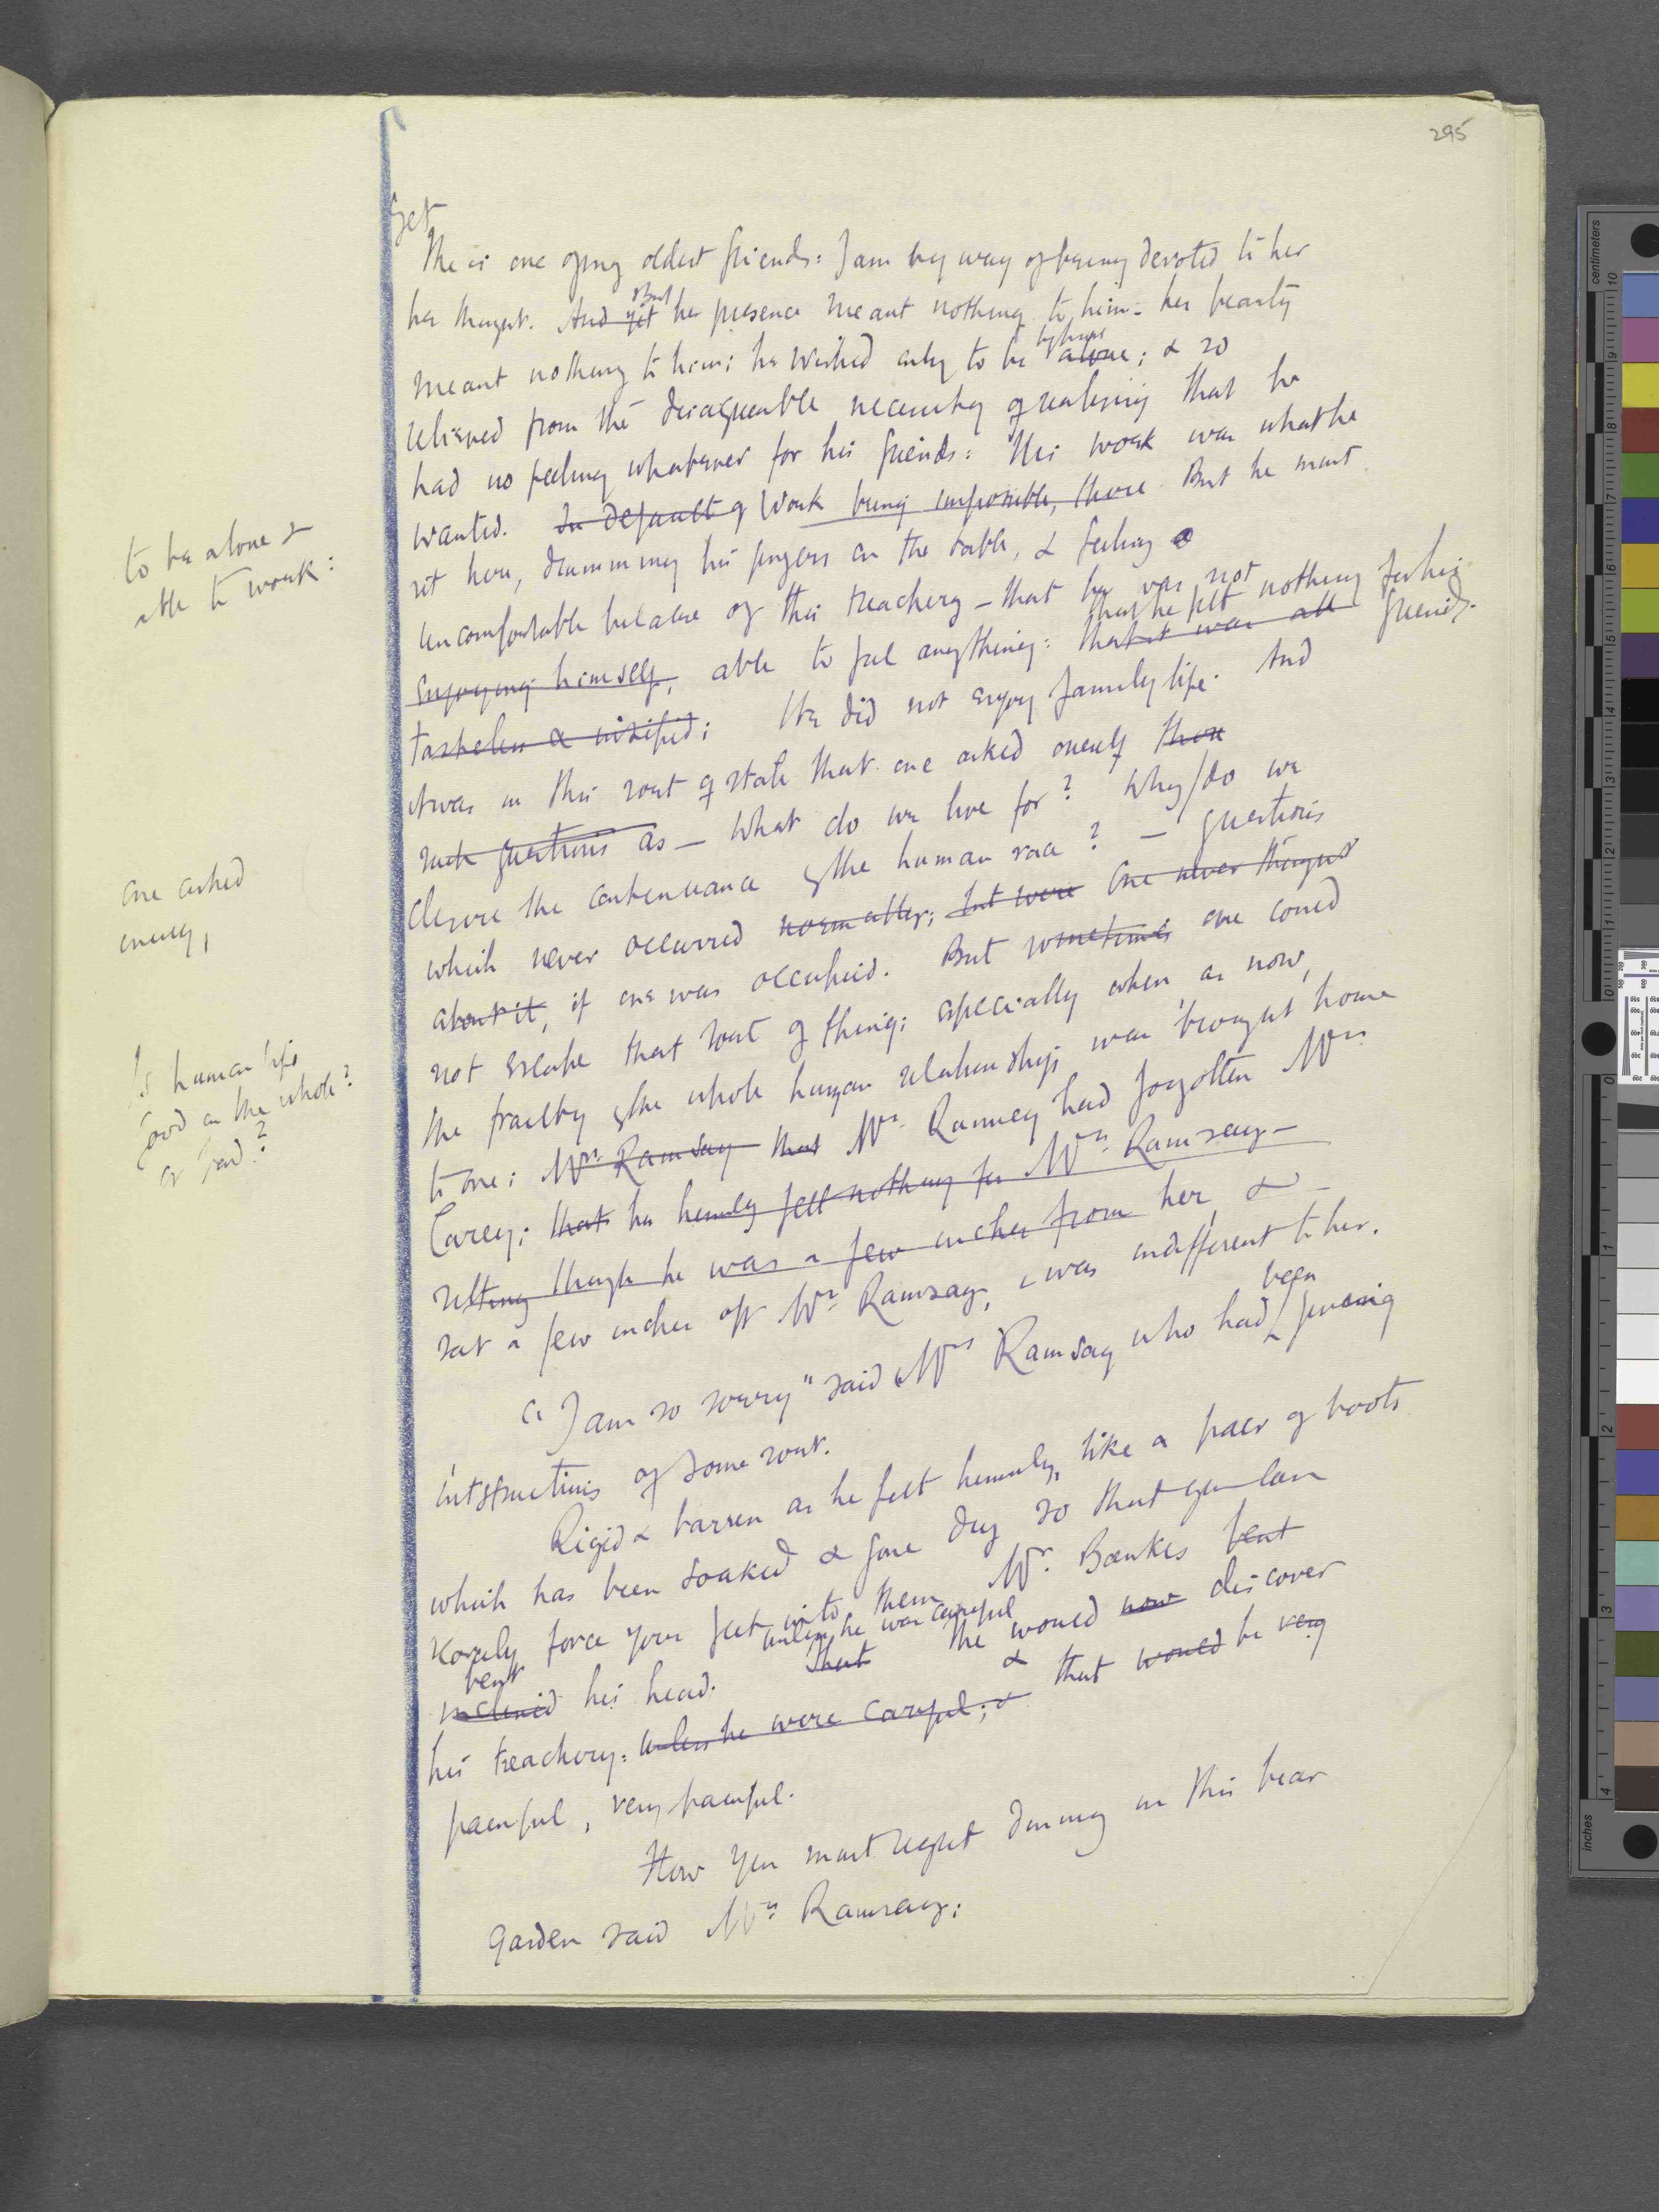 295
Yet
She is one of my oldest friends: I am by way of being devoted to her
he thought. And yet But her presence meant nothing to him: her beauty
meant nothing to him; he wished only to be alone; & so
relieved from the disagreeable necessity of realising that he
had no feeling whatever for his friends: His work was what he
wanted. In default of work being impossible, there But he must
to be alone &
able to work:
sit here, drumming his fingers on the table, & feeling
uncomfortable because of this treachery - that he was not
enjoying himself, able to feel anything: that it was all that he felt nothing for his friends.
tasteless & insipid; He did not enjoy family life. And
it was in this sort of state that one asked oneself those
such questions as - What do we live for? Why do we
one asked
oneself,
desire the continuance of the human race? - questions
which never occurred normally; but were One never thought
about it, if one was occupied. But sometimes one could
not escape that sort of thing: especially when as now,
Is human life
good on the whole?
or bad?
the frailty of the whole human relationships was brought home
to one; Mrs. Ramsay that Mrs. Ramsay had forgotten Mrs.
Carey; that he himself felt nothing for Mrs. Ramsay -
sitting though he was a few inches from her, & -
sat a few inches off Mrs. Ramsay, & was indifferent to her.
"I am so sorry" said Mrs Ramsay who had been giving
intstructions of some sort.
Rigid & barren as he felt himself, like a pair of boots
which has been soaked & gone dry so that you can
scarcely force your feet into them Mr. Bankes bent
inclined bent his head. That unless he was careful She would now discover
his treachery: unless he were careful; & & that would be very
painful, very painful.
How you must regret dining in this bear
garden said Mrs Ramsay: